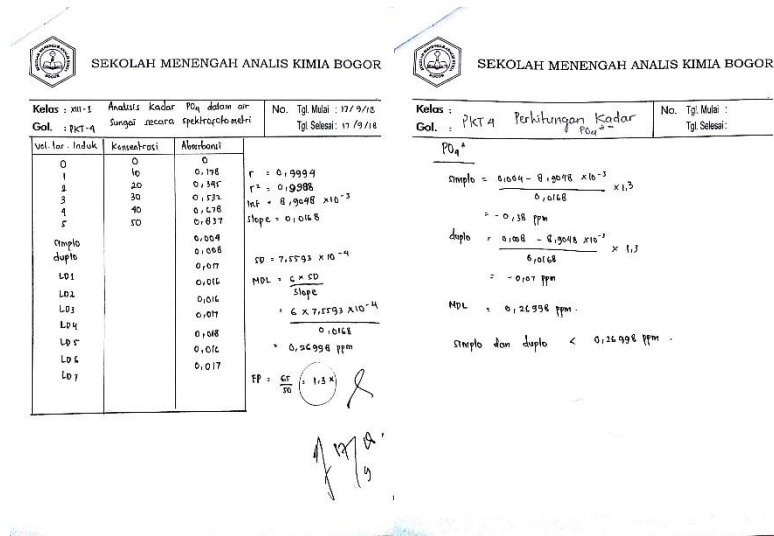 SEKOLAH MENENGAH ANALIS KIMIA BOGOR
Kelas : XIII-3 Analisis Kadar PO4 dalam air
Gol. : PKT-4 Sungai secara spektrofotometri
No. Tgl. Mulai : 17/9/18
Tgl. Selesai : 17/9/18
Vol. lar. Induk Konsentrasi Absorbansi
0 0 0
1 10 0,178
2 20 0,345
3 30 0,532
4 40 0,678
5 50 0,837
simplo 0,004
duplo 0,008
LD1 0,017
LD2 0,016
LD3 0,016
LD4 0,017
LD5 0,018
LD6 0,016
LD7 0,017
r = 0,9994
r² = 0,9988
Int = 8,9048 x10⁻³
slope = 0,0168
SD = 7,5593 x10⁻⁴
MDL = 6 x SD
slope
= 6 x 7,5593 x10⁻⁴
0,0168
= 0,26998 ppm
FP = 65
50
= 1,3 x
SEKOLAH MENENGAH ANALIS KIMIA BOGOR
Kelas :
Gol. : PKT 4 Perhitungan Kadar
No. Tgl. Mulai :
Tgl. Selesai :
simplo = 0,004 - 8,9048 x10⁻³
0,0168
x 1,3
= - 0,38 ppm
duplo = 0,008 - 8,9048 x10⁻³
0,0168
x 1,3
= - 0,07 ppm
MDL = 0,26998 ppm.
simplo dan duplo < 0,26998 ppm.